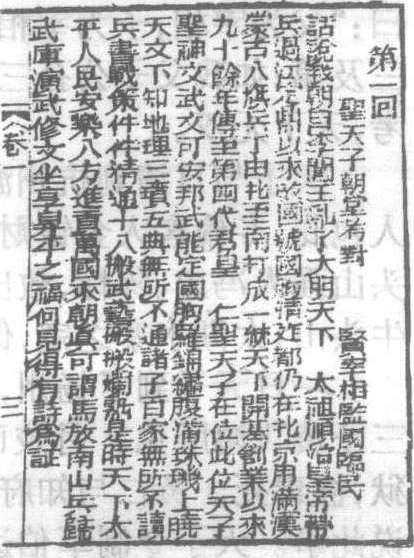 第一回
聖天子朝堂名對 賢宰相監國臨民
話說我朝自李闖王亂了大明天下 太祖順治皇帝帶
兵過江定鼎以來改國號國 清迁都仍在北京用滿漢
蒙古八旗兵丁由北至南打成一統天下開基創業以來
九十餘年傳至第四代君皇 仁聖天子在位此位天子
聖神文武文可安邦武能定國胸羅錦繡腹滿珠璣上曉
天文下知地理三墳五典無所不通諸子百家無所不讀
兵書戰策件件精通十八般武藝般般爛熟是時天下太
平人民安樂八方進貢萬國來朝眞可謂馬放南山兵歸
武庫演武修文坐享昇平之福何見得有詩爲証
卷一